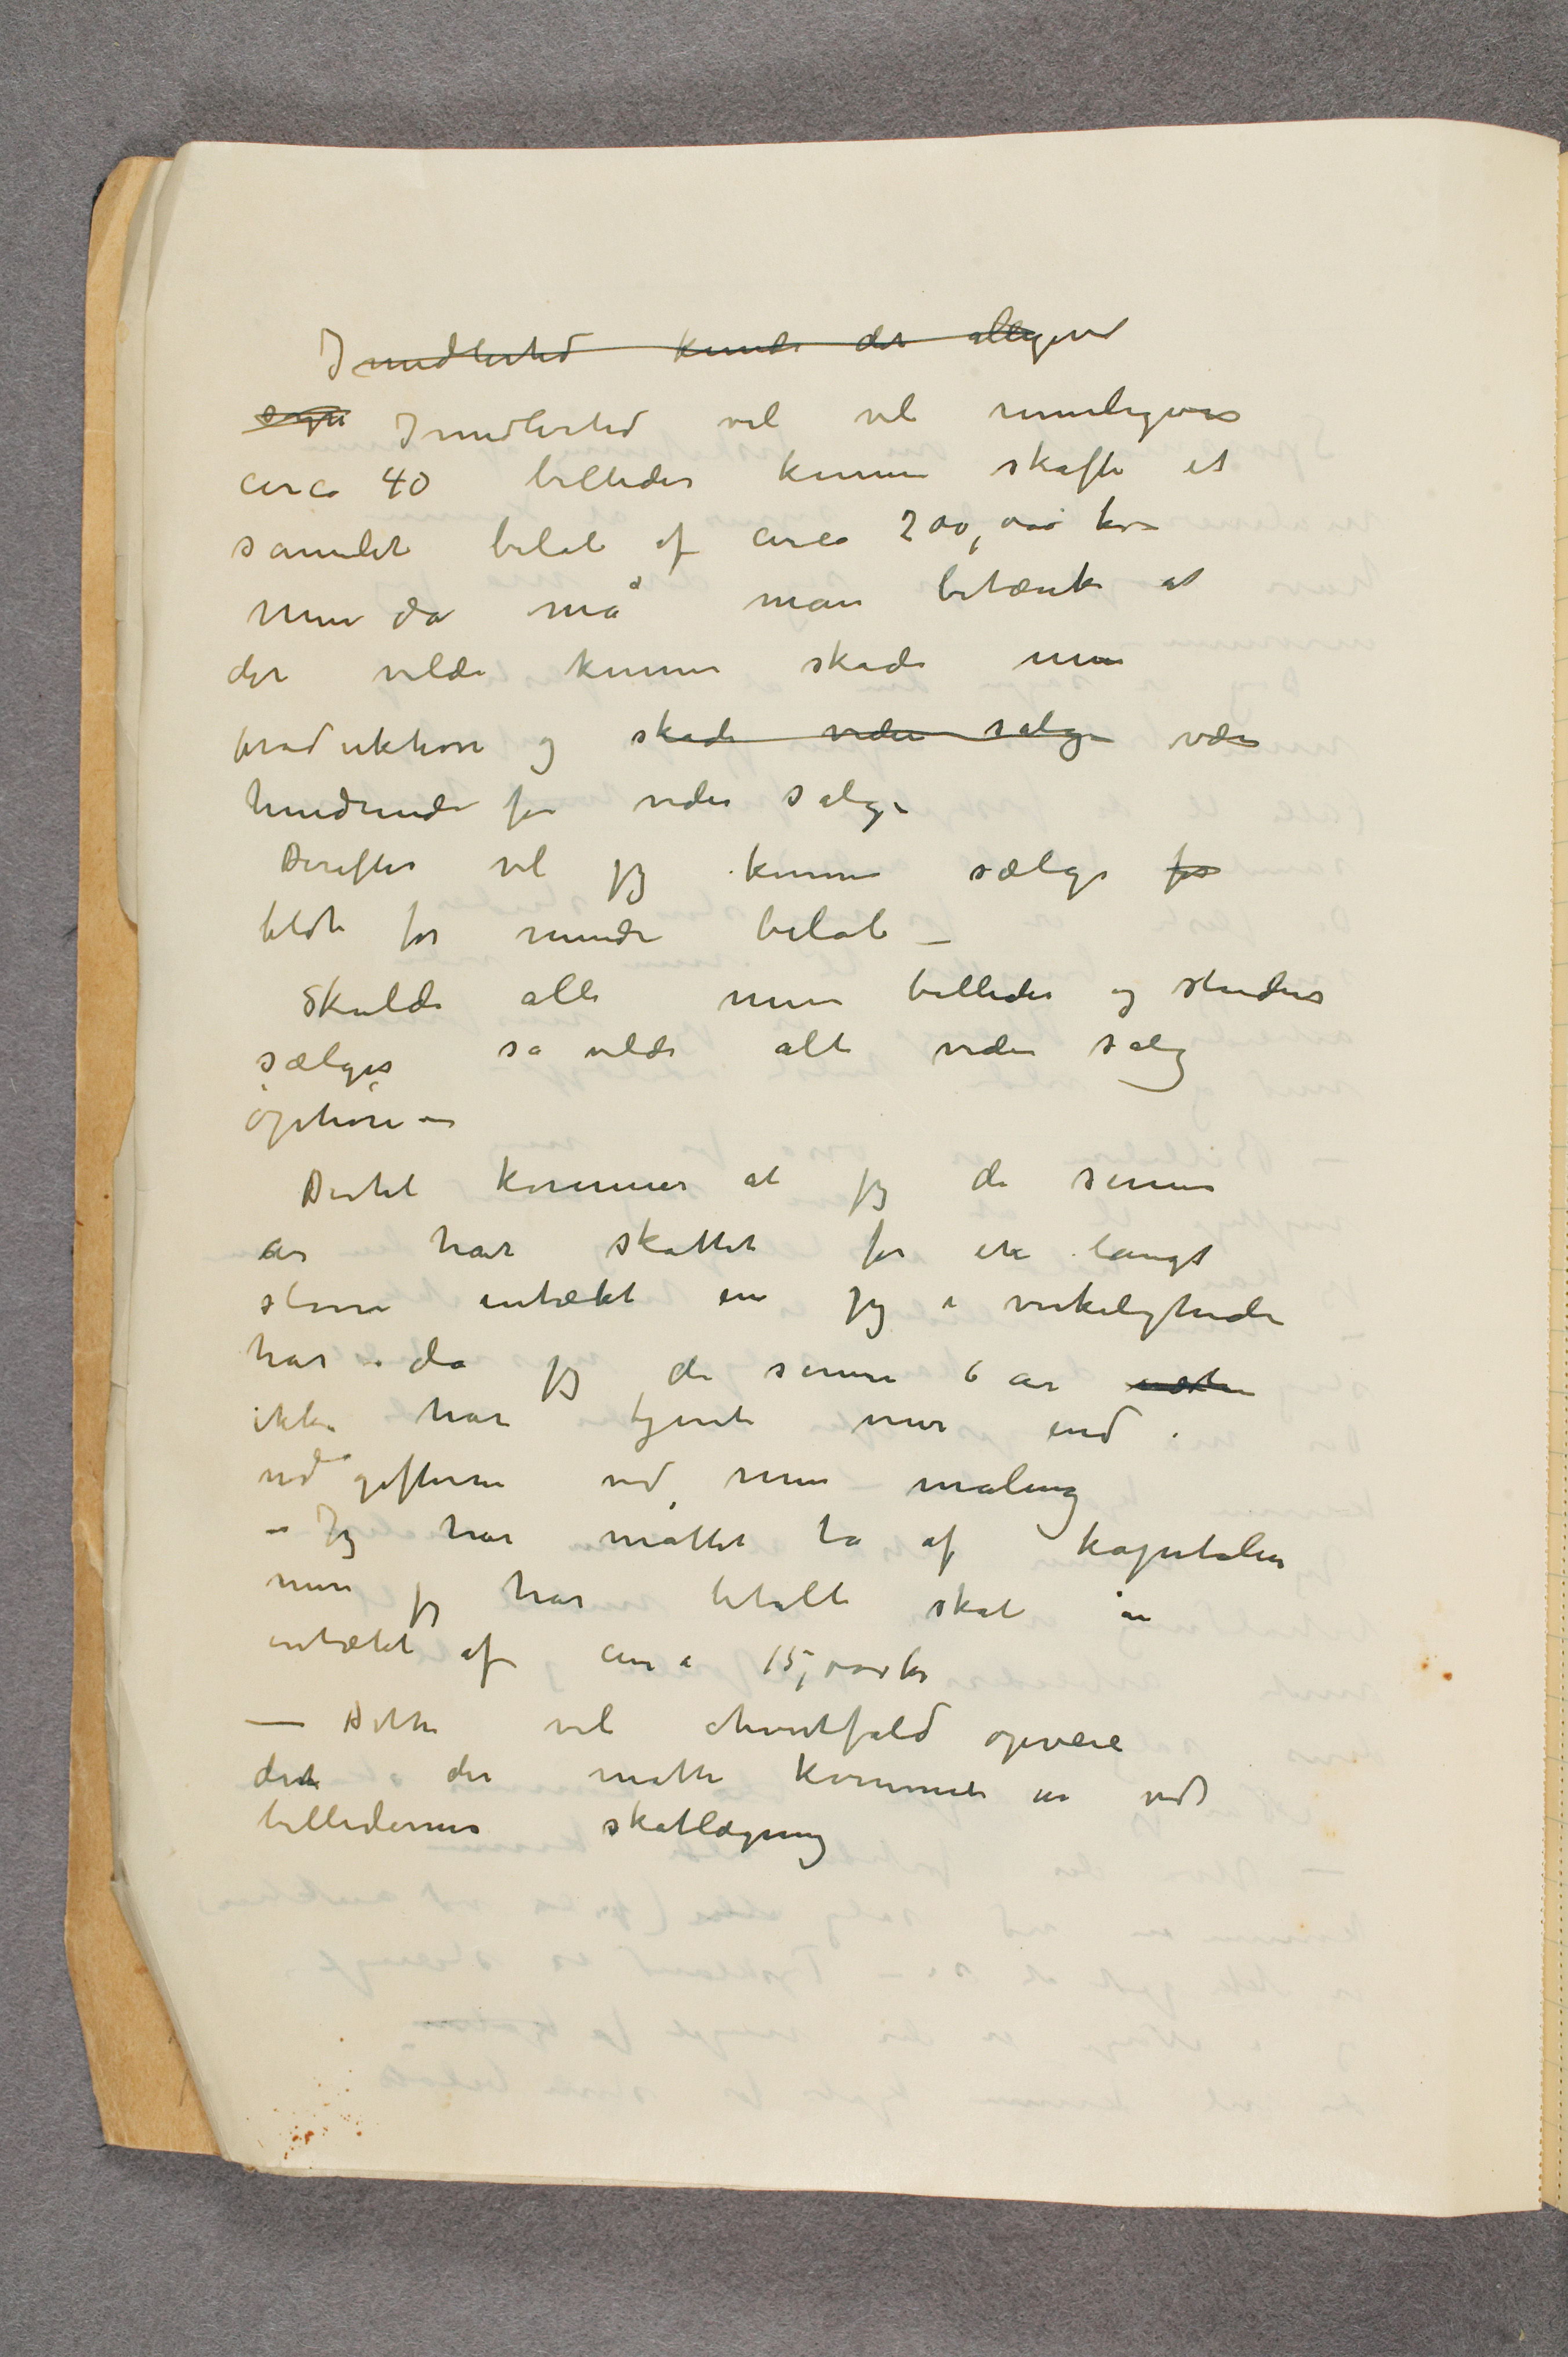 Imidlertid kunde det alligevel
Imidlertid vil vel rimeligvis
circa 40 billeder kunne skaffe et
samlet beløb af circa 200,000 kr –
Men da må man betænke at
det vilde kunne skade min
produktion og skade videre salg – være
hindrende for videre salg –
Derefter vil jeg kunne sælge for
blot for mindre beløb –
Skulde alle mine billeder og studier
sælges så vilde alt videre salg
ophøre –
Dertil kommer at jeg de senere
år har skattet for en langt
større intækt en jeg i virkeligheden
har – da jeg de senere 6 år næsten
ikke har tjent mer end
udgifterne ved min maling
– Jeg har måttet ta af kapitalen
men jeg har betalt skat av
intækt af circa 15,000 kr
– Dette vil ihvertfald opveie
det der måtte komme in ved
billedernes skatlægning